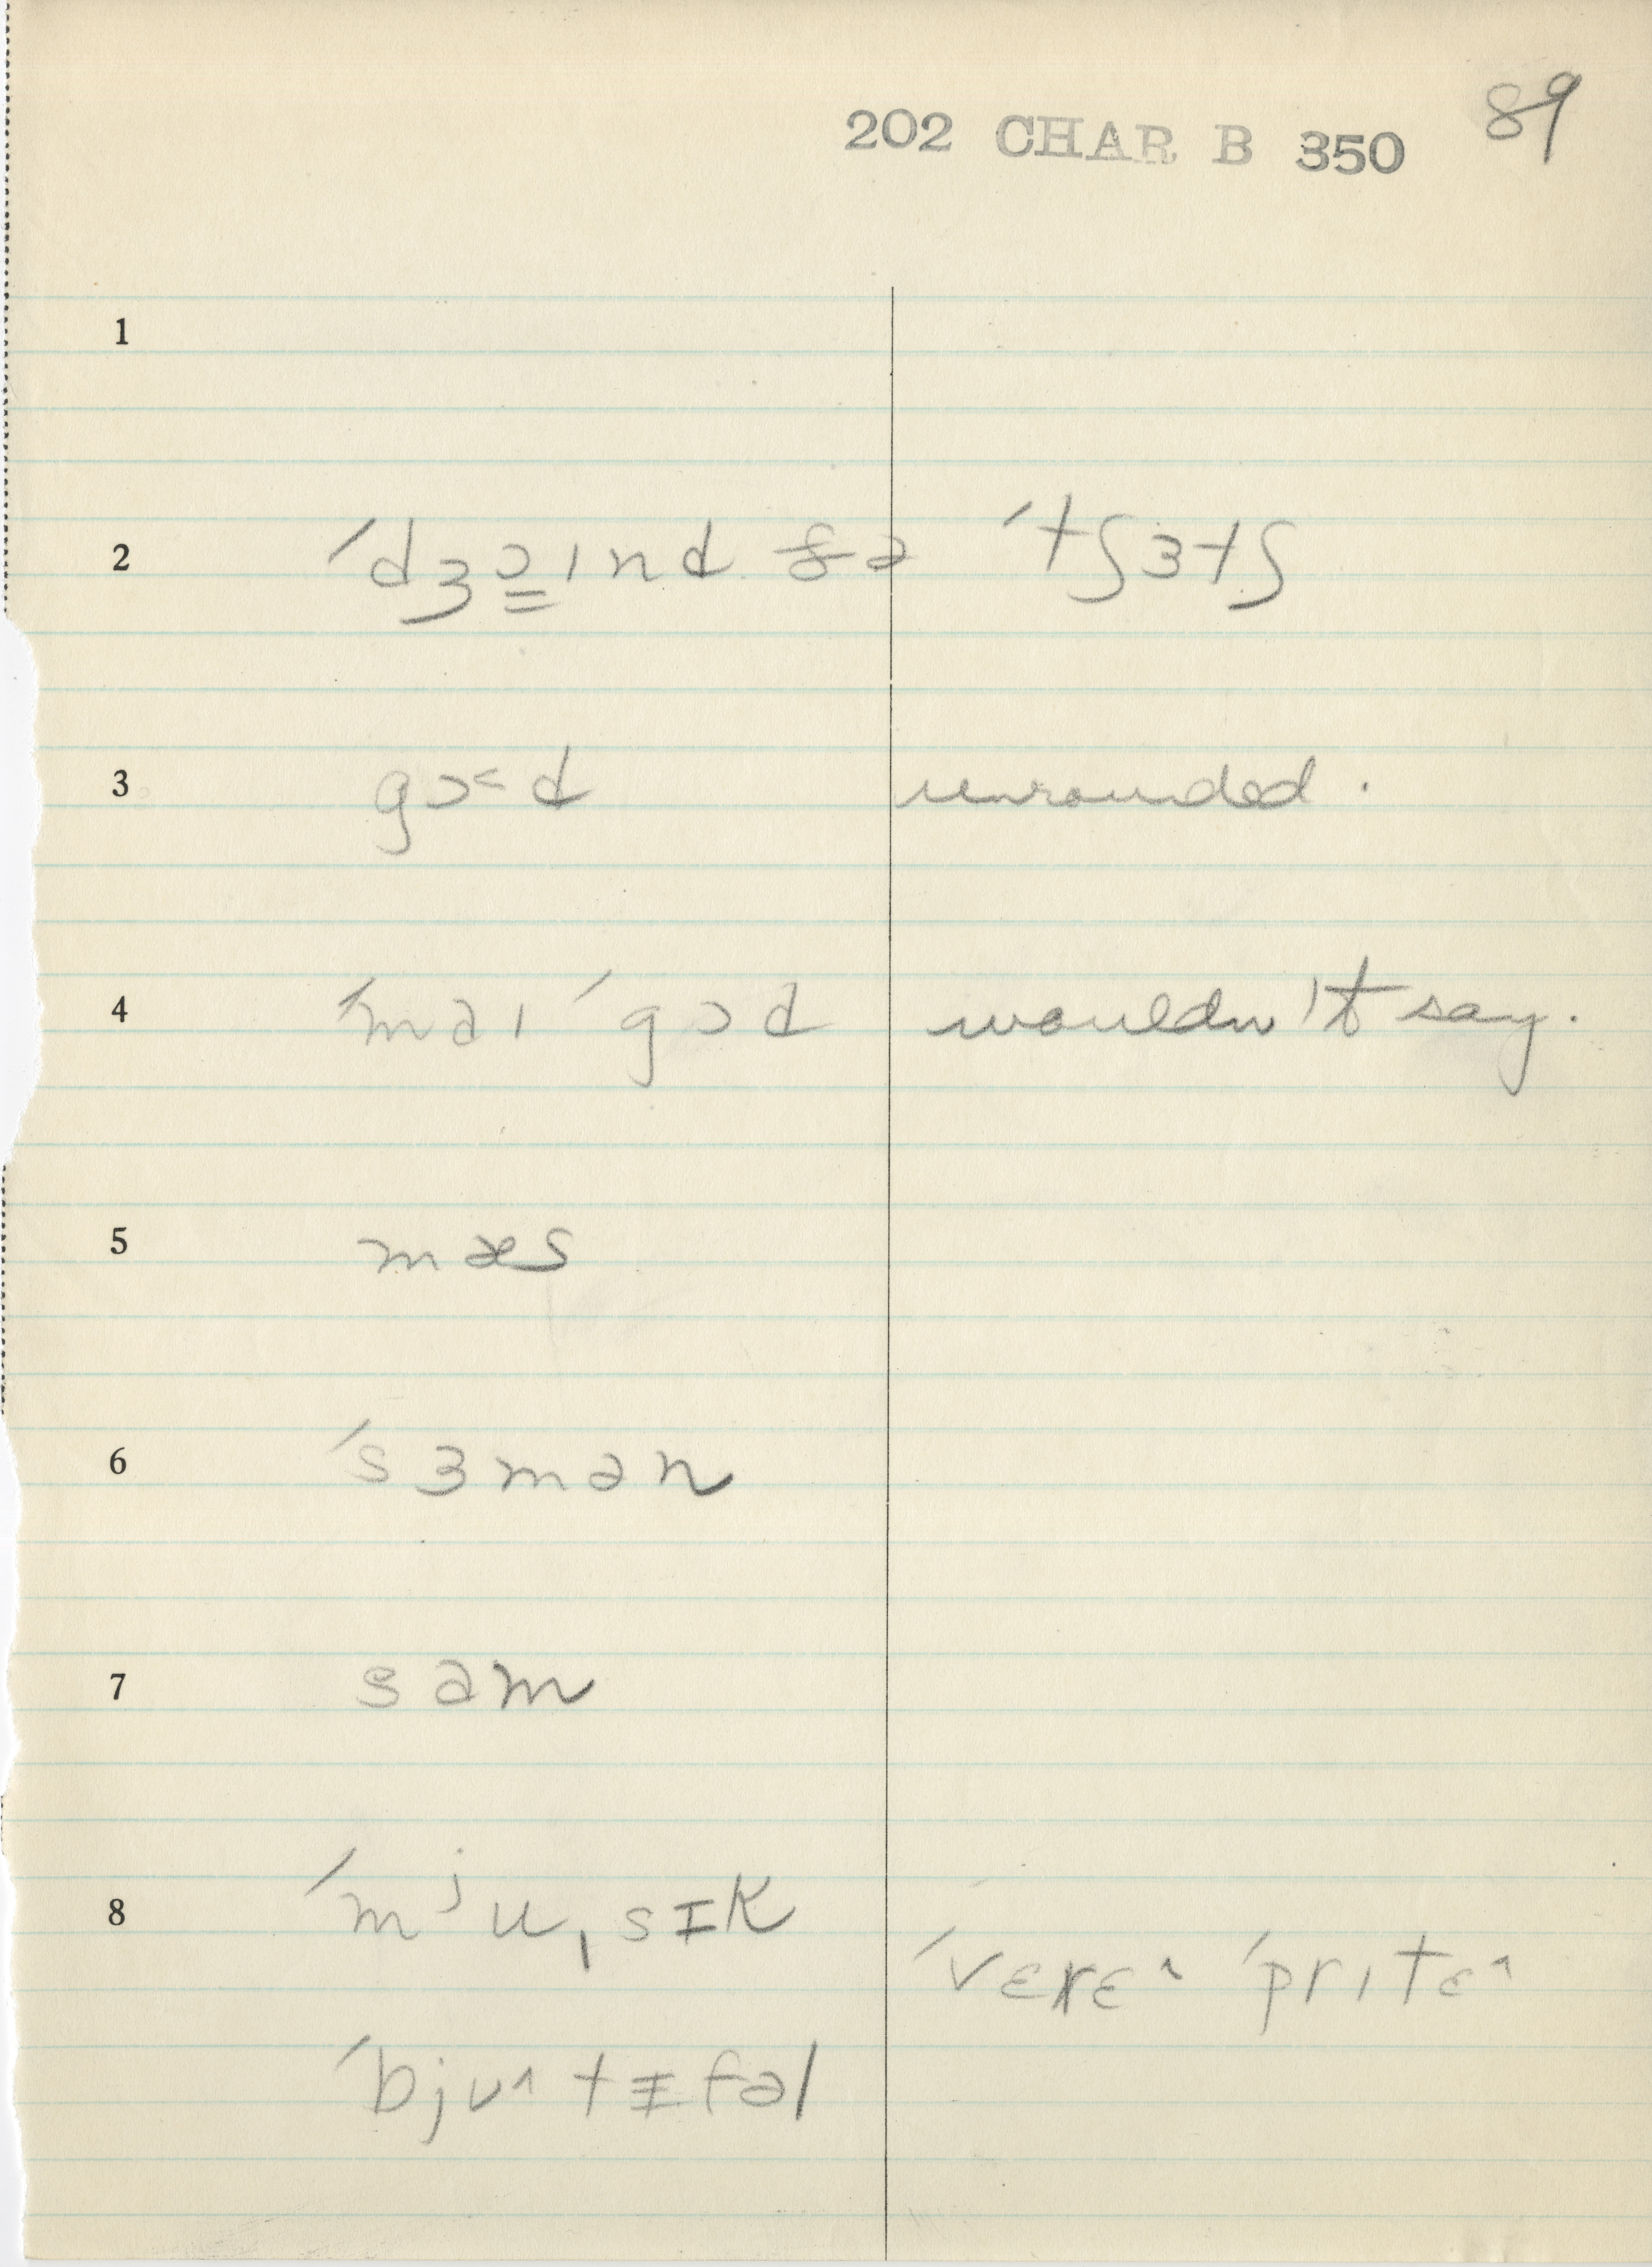 202 CHAR B 350 89
1
2 ´dʒɔ̳ɪnd ðə ´tʃɜtʃ
3 gɔ˂d unrounded.
4 ´maɪ ´gɔd wouldn't say.
5 mæs
6 ´sɜmən
7 sam
8 ´mʲuˌsɪk
´vɛrɛ^ ´prɪtɛ^
´bjʊ^tɪfəl